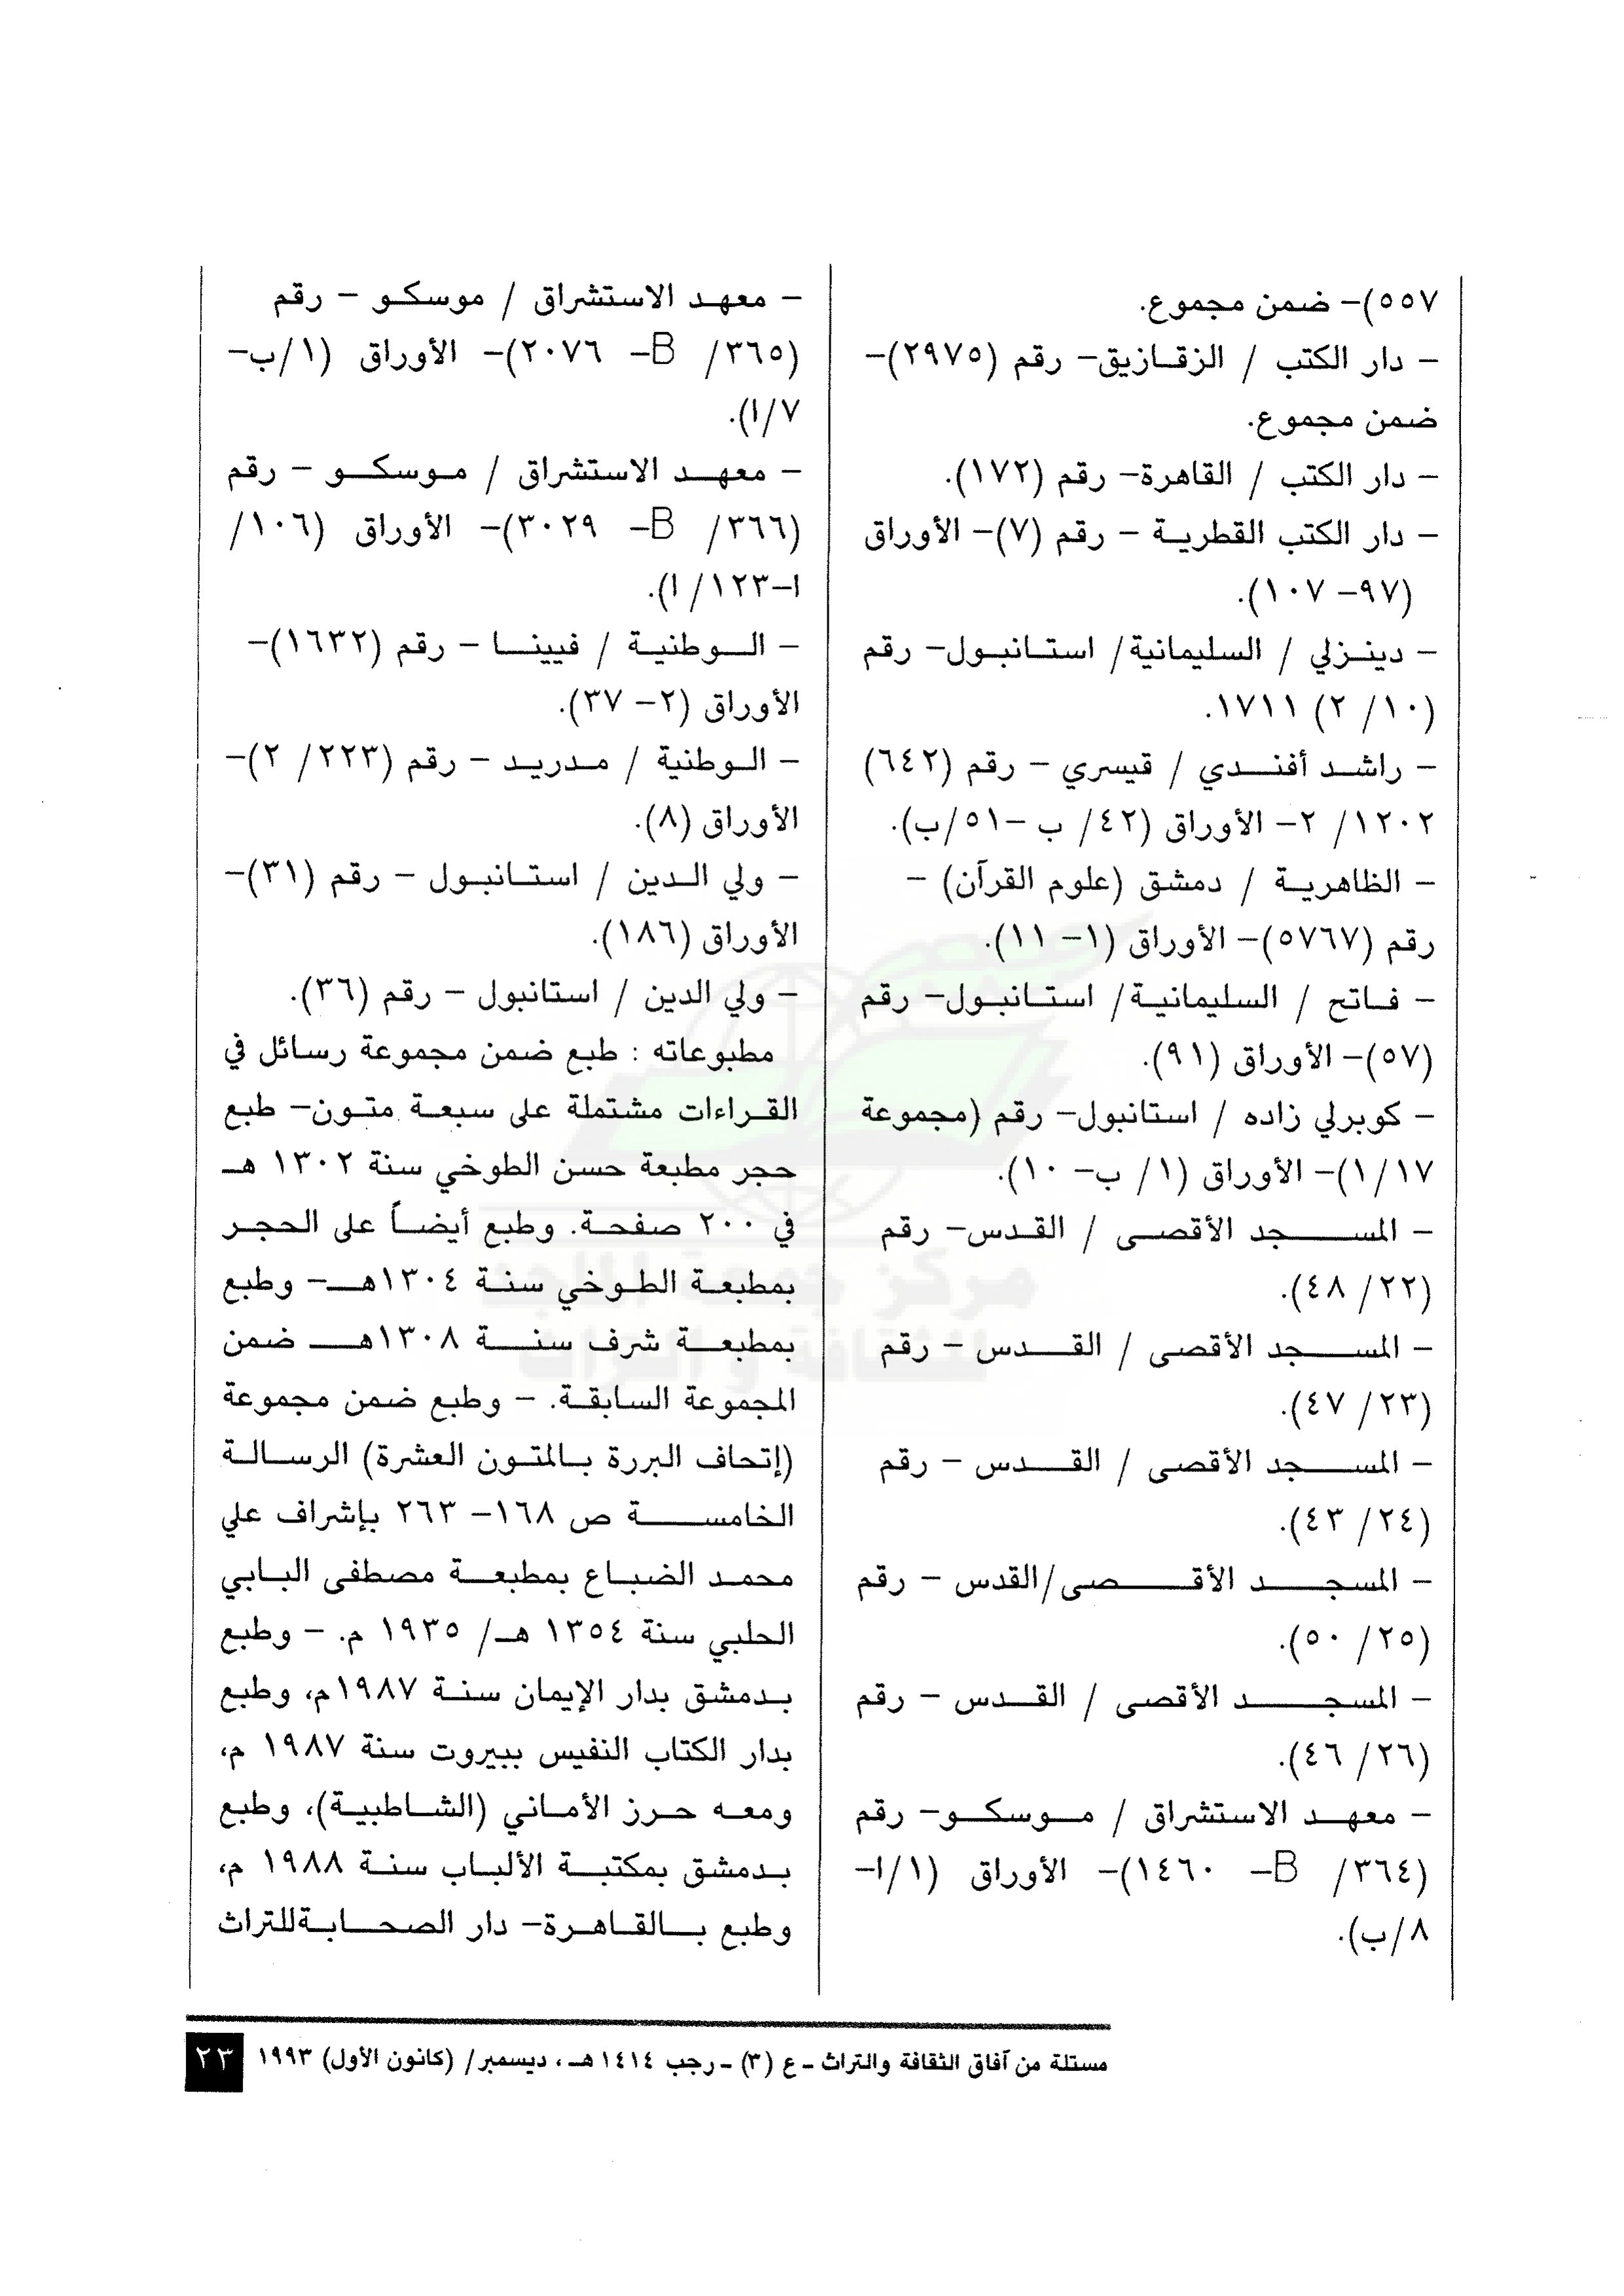 ٥٥٧)– ضمن مجموع.
– دار الكتب / الزقازيق– رقم (٢٩٧٥)–
ضمن مجموع.
– دار الكتب / القاهرة– رقم (١٧٢).
– دار الكتب القطرية – رقم (٧)– الأوراق
(٩٧– ١٠٧).
– دينزلي / السليمانية/ استانبول– رقم
(١٠/ ٢) ١٧١١.
– راشد أفندي / قيسري – رقم (٦٤٢)
١٢٠٢/ ٢– الأوراق (٤٢/ ب –٥١/ب).
– الظاهرية / دمشق (علوم القرآن) –
رقم (٥٧٦٧)– الأوراق (١– ١١).
– فاتح / السليمانية/ استانبول– رقم
(٥٧)– الأوراق (٩١).
– كوبرلي زاده / استانبول– رقم (مجموعة
١/١٧)– الأوراق (١/ ب– ١٠).
– المسجد الأقصى / القدس– رقم
(٢٢/ ٤٨).
– المسجد الأقصى / القدس – رقم
(٢٣/ ٤٧).
– المسجد الأقصى / القدس – رقم
(٢٤/ ٤٣).
– المسجد الأقصى/القدس – رقم
(٢٥/ ٥٠).
– المسجد الأقصى / القدس – رقم
(٢٦/ ٤٦).
– معهد الاستشراق / موسكو– رقم
(٣٦٤/ B– ١٤٦٠)– الأوراق (١/ا–
٨/ب).
– معهد الاستشراق / موسكو – رقم
(٣٦٥/ B– ٢٠٧٦)– الأوراق (١/ب–
٧/ا).
– معهد الاستشراق / موسكو – رقم
(٣٦٦/ B– ٣٠٢٩)– الأوراق (١٠٦/
ا–١٢٣/ ا).
– الوطنية / فيينا – رقم (١٦٣٢)–
الأوراق (٢– ٣٧).
– الوطنية / مدريد – رقم (٢٢٣/ ٢)–
الأوراق (٨).
– ولي الدين / استانبول – رقم (٣١)–
الأوراق (١٨٦).
– ولي الدين / استانبول – رقم (٣٦).
مطبوعاته : طبع ضمن مجموعة رسائل في
القراءات مشتملة على سبعة متون– طبع
حجر مطبعة حسن الطوخي سنة ١٣٠٢ هـ
في ٢٠٠ صفحة. وطبع أيضاً على الحجر
بمطبعة الطوخي سنة ١٣٠٤هـ– وطبع
بمطبعة شرف سنة ١٣٠٨هـ ضمن
المجموعة السابقة. – وطبع ضمن مجموعة
(إتحاف البررة بالمتون العشرة) الرسالة
الخامسة ص ١٦٨– ٢٦٣ بإشراف علي
محمد الضباع بمطبعة مصطفى البابي
الحلبي سنة ١٣٥٤ هـ/ ١٩٣٥ م. – وطبع
بدمشق بدار الإيمان سنة ١٩٨٧م، وطبع
بدار الكتاب النفيس ببيروت سنة ١٩٨٧ م،
ومعه حرز الأماني (الشاطبية)، وطبع
بدمشق بمكتبة الألباب سنة ١٩٨٨ م،
وطبع بالقاهرة– دار الصحابةللتراث
مركز جمعة الماجد
للثقافة و التراث
مستلة من آفاق الثقافة والتراث ـ ع (٣) ـ رجب ١٤١٤ هـ، ديسمبر/ (كانون الأول) ١٩٩٣ ٢٣